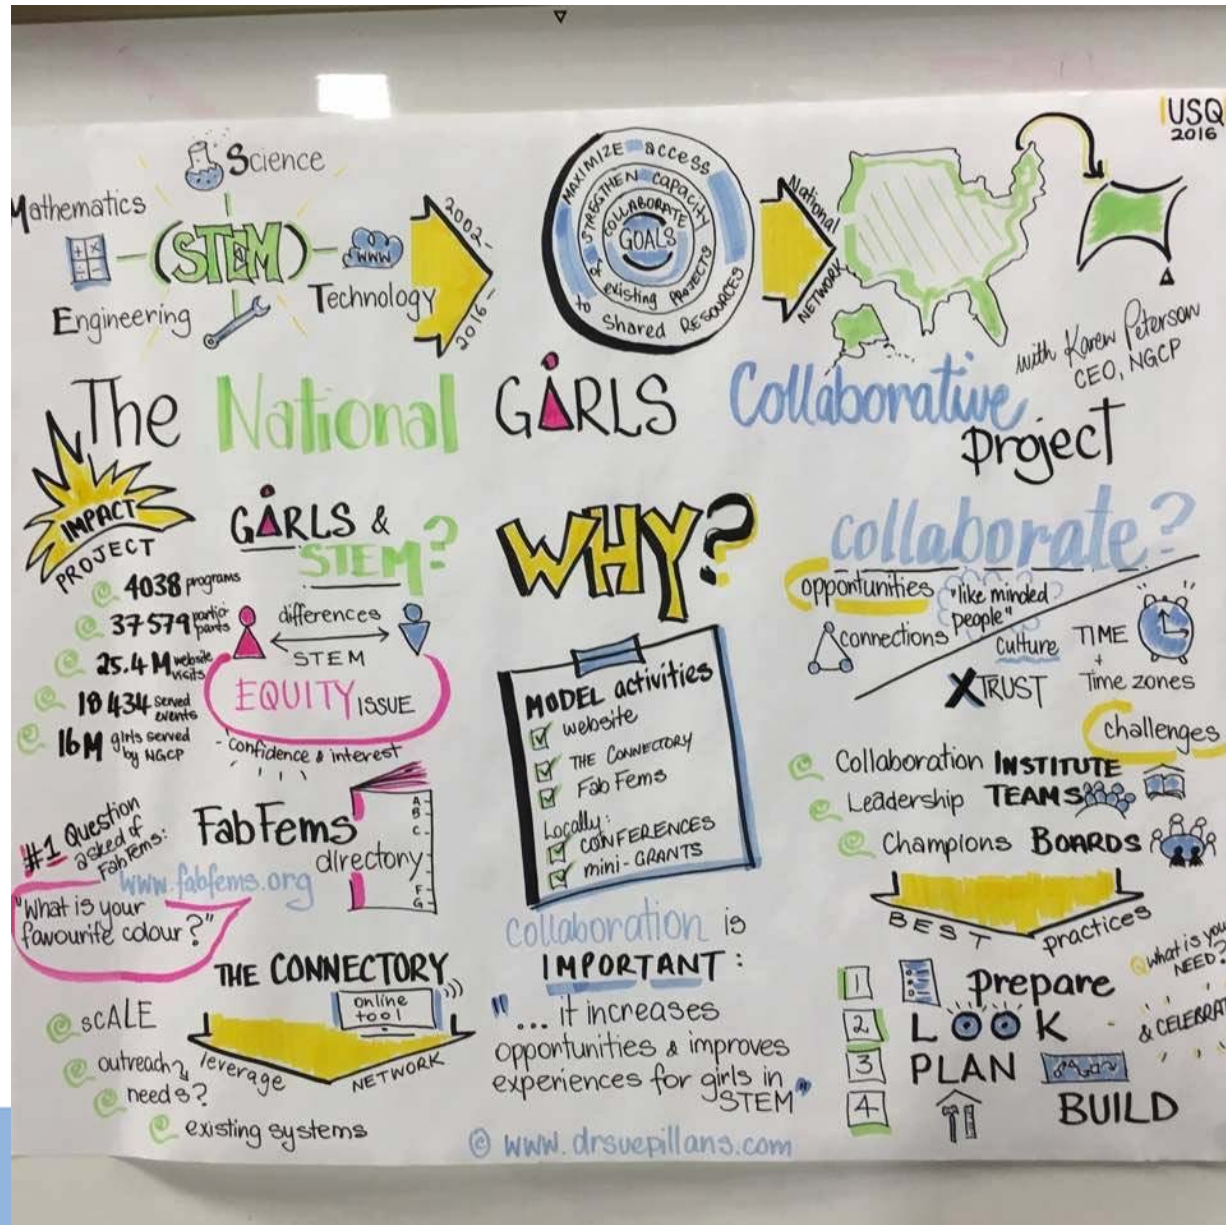 USQ
2016
Science
Mathematics
(STEM)
WWW
Engineering
Technology
2002-
2016-
MAXIMIZE access
to shared RESOURCES
STREGTHEN CAPACITY
of existing PROJECTS
COLLABORATE
GOALS
National
NETWORK
with Karen Peterson
CEO, NGCP
The National GIRLS Collaborative
project
IMPACT
PROJECT
4038 programs
37579 partici
pants
25.4M website
visits
18434 served
events
16M girls served
by NGCP
GIRLS &
STEM?
differences
STEM
EQUITY ISSUE
- confidence & interest
#1 Question
asked of
FabFems:
"What is your
favourite colour?"
FabFems
directory
www.fabfems.org
A-
B-
C-
F-
G-
THE CONNECTORY
online
tool
leverage
NETWORK
scALE
outreach
needs?
existing systems
WHY?
MODEL activities
website
THE CONNECTORY
Fab Fems
Locally:
CONFERENCES
mini-GRANTS
Collaboration is
IMPORTANT:
"... it increases
opportunities & improves
experiences for girls in
STEM"
© www.drsuepillans.com
collaborate?
opportunities
"like minded
people"
connections
culture
TIME
+
Time zones
X TRUST
challenges
Collaboration INSTITUTE
Leadership TEAMS
Champions BOARDS
BEST practices
1 prepare
2 LOOK
3 PLAN
4 BUILD
Q What is your
NEED?
& CELEBRAT